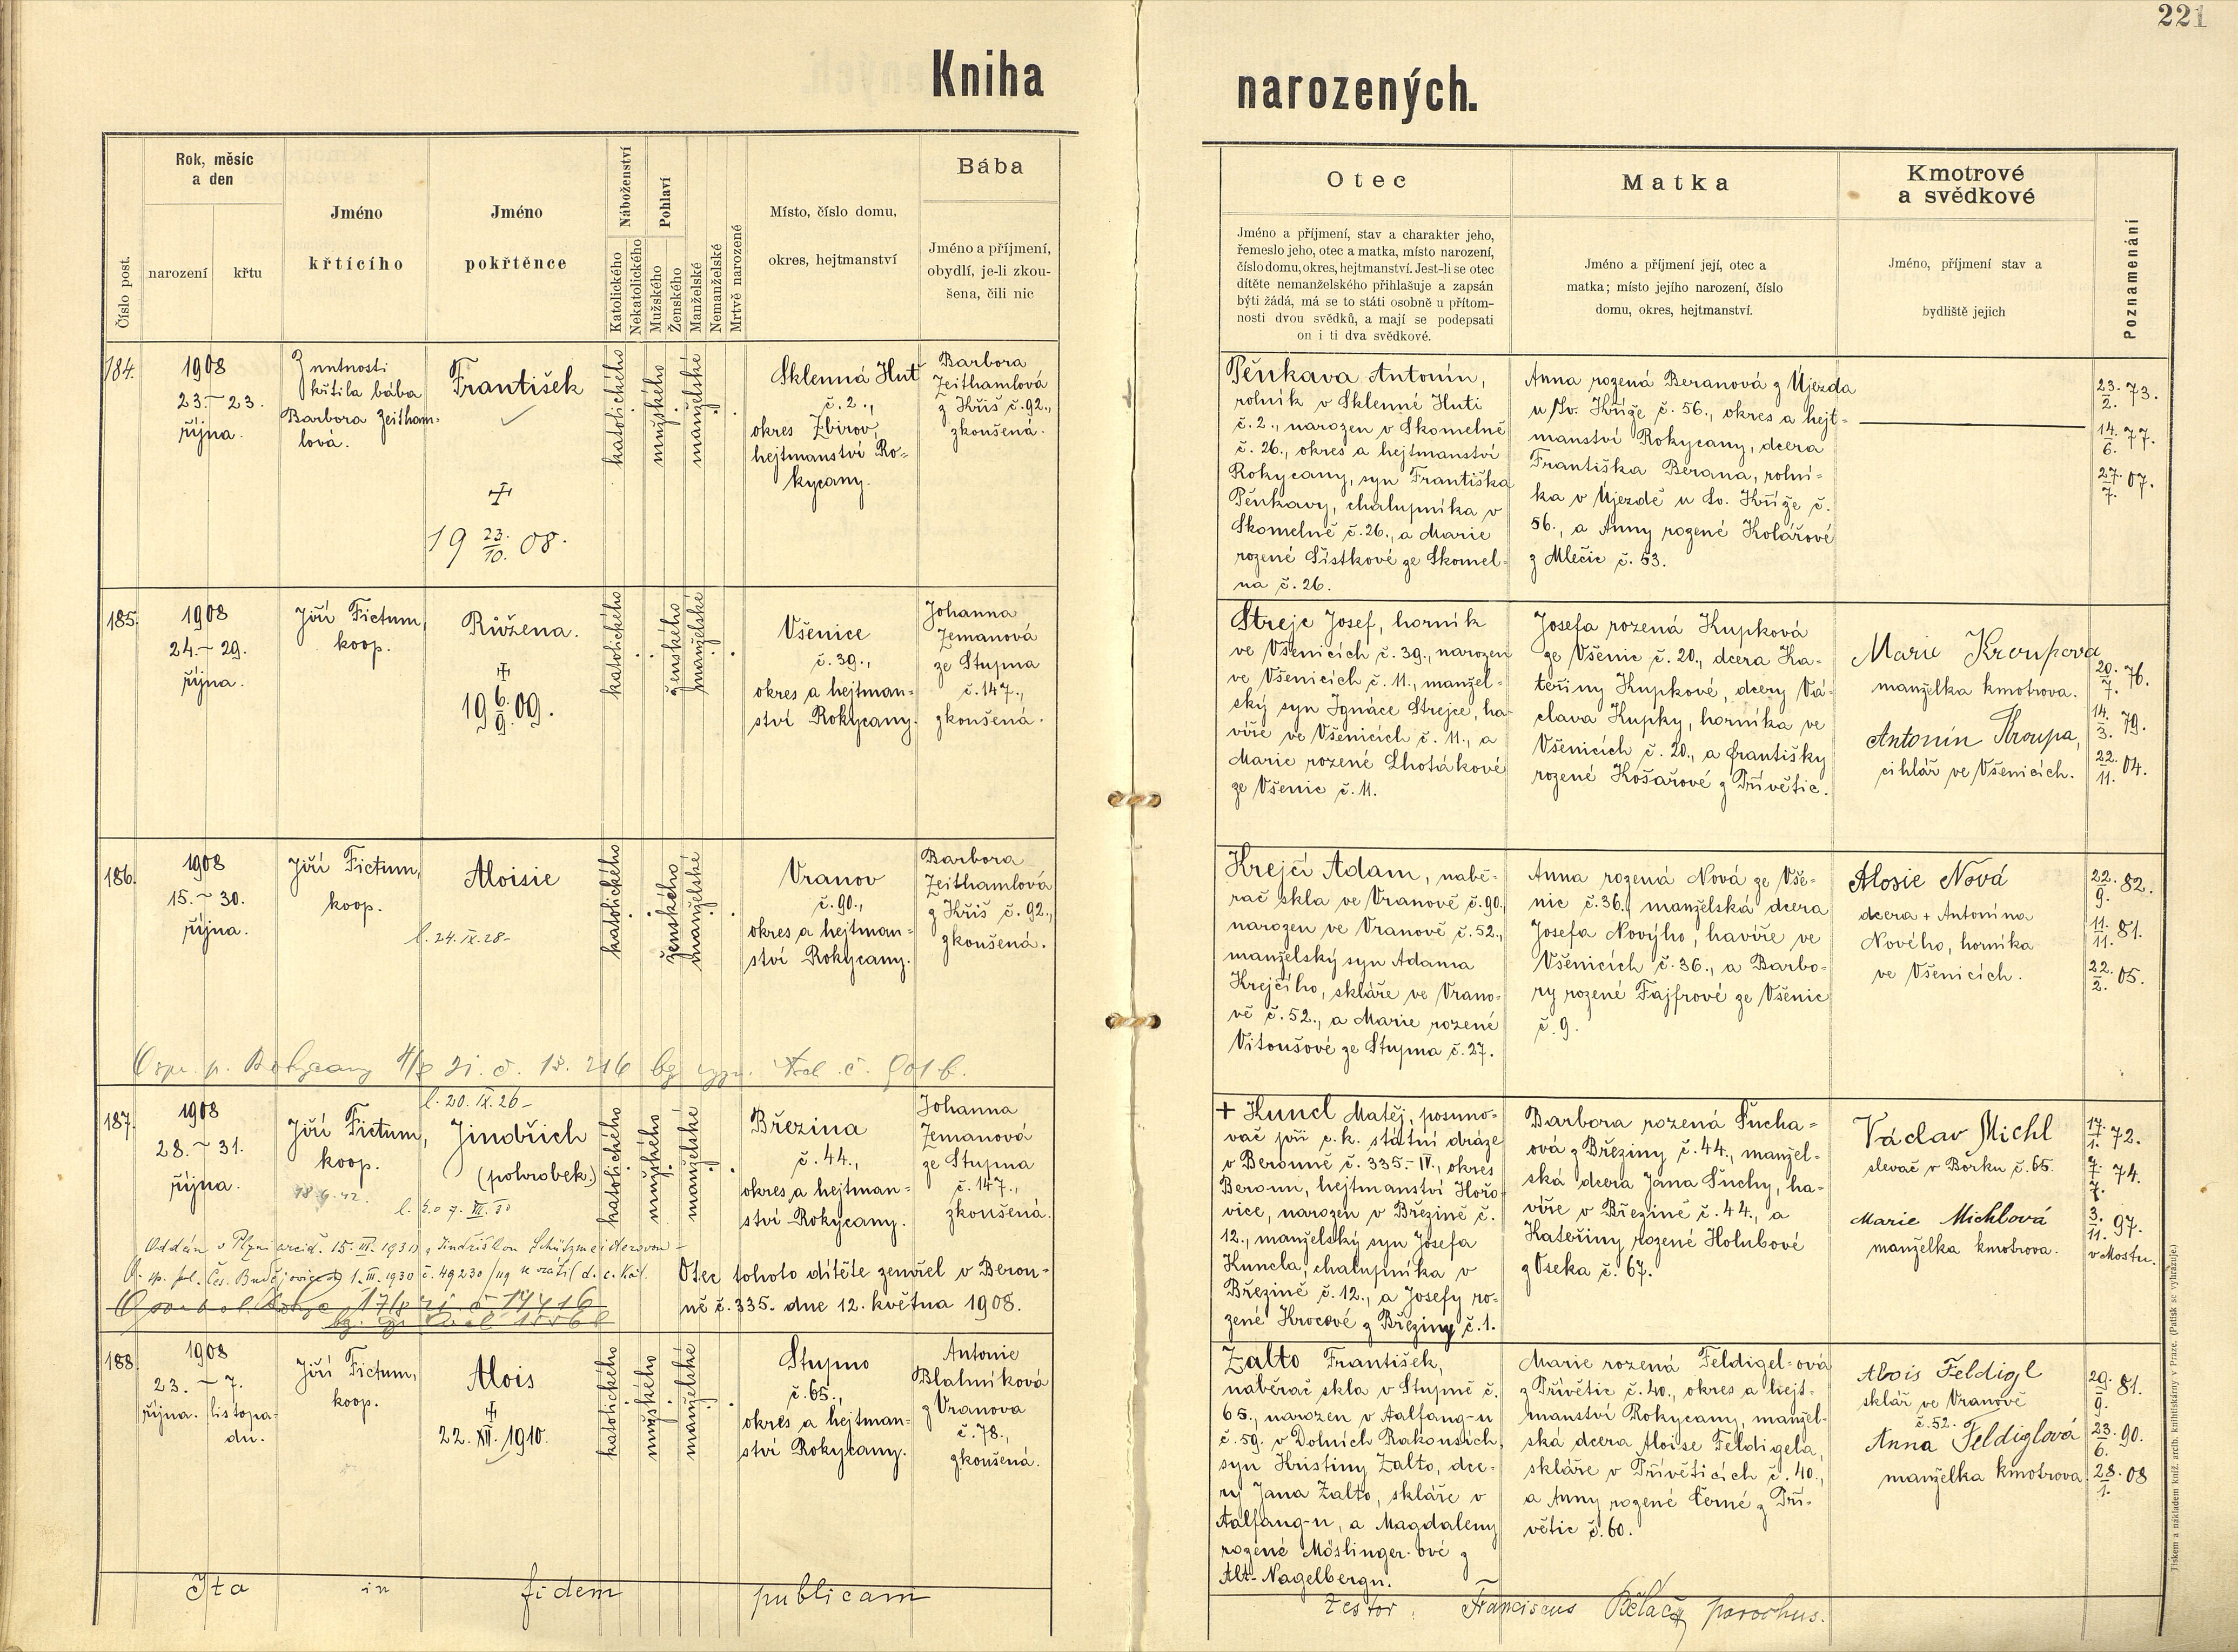 221
Kniha narozených.
Číslo post.
Rok, měsíc
a den
narození
křtu
Jméno
křtícího
Jméno
pokřtěnce
Náboženství
Katolického
Nekatolického
Pohlaví
Mužského
Ženského
Manželské
Nemanželské
Mrtvě narozené
Místo, číslo domu,
okres, hejtmanství
Bába
Jméno a příjmení,
obydlí, je-li zkou-
šena, čili nic
Otec
Jméno a příjmení, stav a charakter jeho,
řemeslo jeho, otec a matka, místo narození,
číslo domu, okres, hejtmanství. Jest-li se otec
dítěte nemanželského přihlašuje a zapsán
býti žádá, má se to státi osobně u přítom-
nosti dvou svědků, a mají se podepsati
on i ti dva svědkové.
Matka
Jméno a příjmení její, otec a
matka; místo jejího narození, číslo
domu, okres, hejtmanství.
Kmotrové
a svědkové
Jméno, příjmení stav a
bydliště jejich
Poznamenání
184.
1908
23. – 23.
října.
Z nutnosti
křtila bába
Barbora Zeitham-
lová.
František
+
19 23./10. 08.
katolického
mužského
manželské
Sklenná Huť
č. 2.,
okres Zbirov,
hejtmanství Ro-
kycany.
Barbora
Zeithamlová
z Kříš č. 92.,
zkoušená.
Pěnkava Antonín,
rolník v Sklenné Huti
č. 2., narozen v Skomelně
č. 26., okres a hejtmanství
Rokycany, syn Františka
Pěnkavy, chalupníka v
Skomelně č. 26., a Marie
rozené Šístkové ze Skomel-
na č. 26.
Anna rozená Beranová z Újezda
u Sv. Kříže č. 56., okres a hejt-
manství Rokycany, dcera
Františka Berana, rolní-
ka v Újezdě u Sv. Kříže č.
56., a Anny rozené Kolářové
z Mlečic č. 53.
23./2. 73.
14./6. 77.
27./7. 07.
185.
1908
24. – 29.
října.
Jiří Fictum,
koop.
Růžena.
+
19 6./9. 09.
katolického
ženského
manželské
Všenice
č. 39.,
okres a hejtman-
ství Rokycany.
Johanna
Zemanová
ze Stupna
č. 147.,
zkoušená.
Strejc Josef, horník
ve Všenicích č. 39., narozen
ve Všenicích č. 11., manžel-
ský syn Ignáce Strejce, ha-
víře ve Všenicích č. 11., a
Marie rozené Lhotákové
ze Všenic č. 11.
Josefa rozená Kupková
ze Všenic č. 20., dcera Ka-
teřiny Kupkové, dcery Vá-
clava Kupky, horníka ve
Všenicích č. 20., a Františky
rozené Košařové z Přívětic.
Marie Kroupova
manželka kmotrova.
Antonín Kroupa,
cihlář ve Všenicích.
20./7. 76.
14./3. 79.
22./11. 04.
186.
1908
15. – 30.
října.
Jiří Fictum,
koop.
Aloisie
l. 24. IX. 28 –
katolického
ženského
manželské
Vranov
č. 90.,
okres a hejtman-
ství Rokycany.
Barbora
Zeithamlová
z Kříš č. 92.,
zkoušená.
Krejčí Adam, nabě-
rač skla ve Vranově č. 90.,
narozen ve Vranově č. 52.,
manželský syn Adama
Krejčího, skláře ve Vrano-
vě č. 52., a Marie rozené
Vitoušové ze Stupna č. 27.
Anna rozená Nová ze Vše-
nic č. 36., manželská dcera
Josefa Novýho, havíře ve
Všenicích č. 36., a Barbo-
ry rozené Fajfrové ze Všenic
č. 9.
Alosie Nová
dcera + Antonína
Nového, horníka
ve Všenicích.
22./9. 82.
11./11. 81.
22./2. 05.
187.
1908
28. – 31.
října.
Jiří Fictum,
koop.
18. 9. 42.
l. 20. IX. 26 –
Jindřich
(pohrobek.)
katolického
mužského
manželské
Březina
č. 44.,
okres a hejtman-
ství Rokycany.
Johanna
Zemanová
ze Stupna
č. 147.,
zkoušená.
Otec tohoto dítěte zemřel v Beroun-
ně č. 335. dne 12. května 1908.
+ Kuncl Matěj, posuno-
vač při c. k. státní dráze
v Berouně č. 335.–IV., okres
Beroun, hejtmanství Hořo-
vice, narozen v Březině č.
12., manželský syn Josefa
Kuncla, chalupníka v
Březině č. 12., a Josefy ro-
zené Krocové z Březiny č. 1.
Barbora rozená Sucha-
ová z Březiny č. 44., manžel-
ská dcera Jana Suchy, ha-
víře v Březině č. 44., a
Kateřiny rozené Holubové
z Oseka č. 67.
Václav Michl
slevač v Borku č. 65.
Marie Michlová
manželka kmotrova.
17./1. 72.
7./7. 74.
3./11. 97.
v Mostu.
188.
1908
23. – 7.
října. listopa-
du.
Jiří Fictum,
koop.
Alois
+
22. XII. 1910.
katolického
mužského
manželské
Stupno
č. 65.,
okres a hejtman-
ství Rokycany.
Antonie
Blahníková
z Vranova
č. 78.,
zkoušená.
Zalto František,
naběrač skla v Stupně č.
65., narozen v Aalfang-u
č. 59. v Dolních Rakousích,
syn Kristiny Zalto, dce-
ry Jana Zalto, skláře v
Aalfang-u, a Magdaleny
rozené Möslinger-ové z
Alt-Nagelbergu.
Marie rozená Feldigel-ová
z Přívětic č. 40., okres a hejt-
manství Rokycany, manžel-
ská dcera Aloise Feldigela,
skláře v Příveticích č. 40.,
a Anny rozené Černé z Pří-
větic č. 60.
Alois Feldigl
sklář ve Vranově
č. 52.
Anna Feldiglová
manželka kmotrova.
29./9. 81.
23./6. 90.
28./1. 08
Ita in fidem publicam
testor: Franciscus Bělačy parochus.